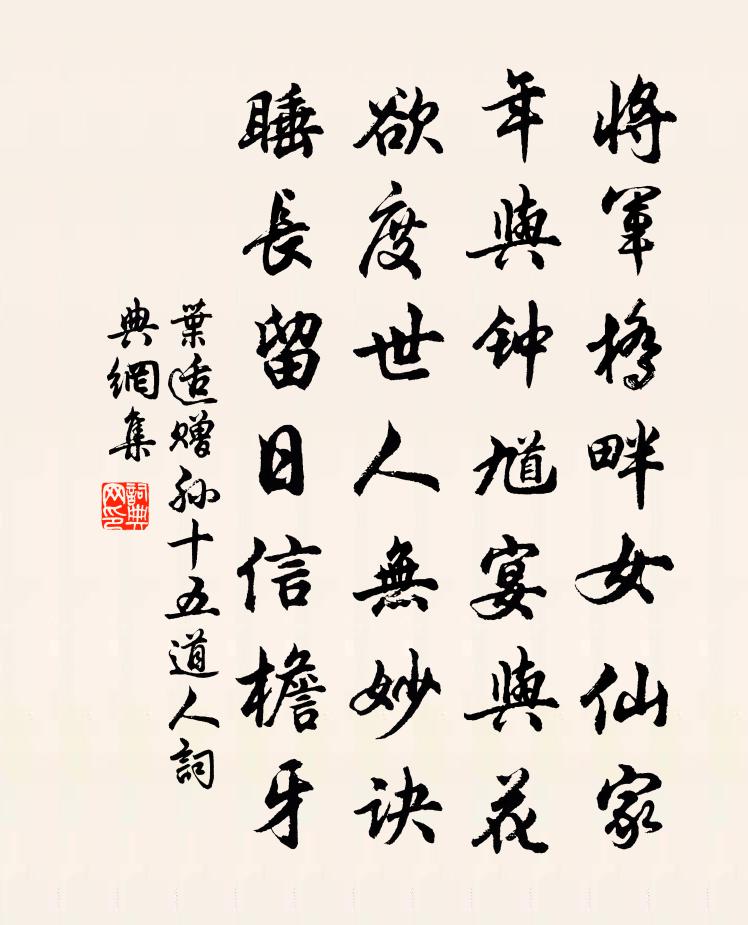 將軍橋畔女仙家
年與钟馗宴與花
欲度世人無妙诀
睡長留日信檐牙
葉适赠孙十五道人詞
典網集
詞典网印